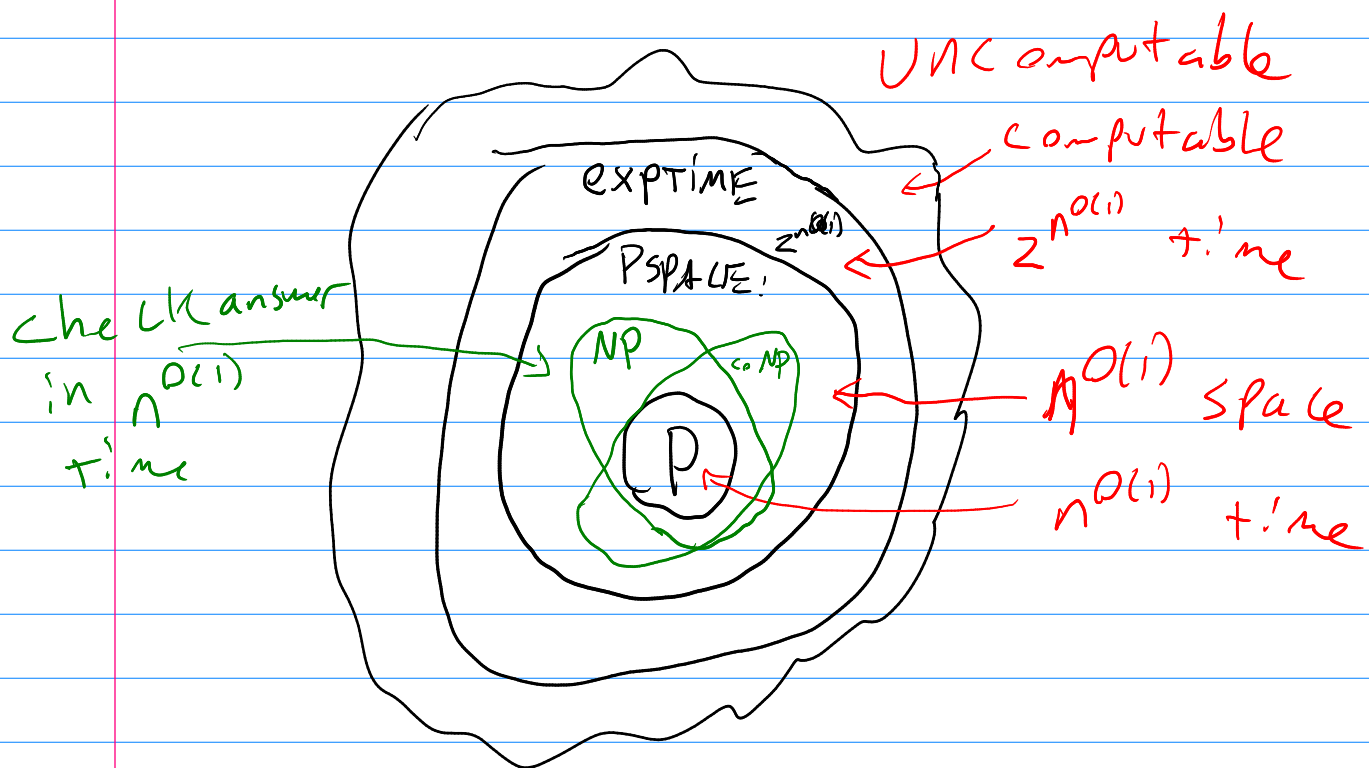 uncomputable
computable
EXPTIME
2^n^O(1)
2^n^O(1) time
PSPACE:
check answer
in n^O(1)
time
NP
co NP
n^O(1) space
P
n^O(1) time